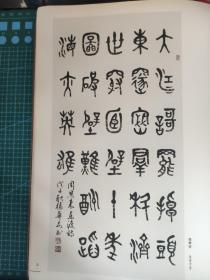 大江謌罷掉頭
東邃密羣科濟
世窮面壁十年
圖破壁難酬蹈
海亦英雄
周恩來